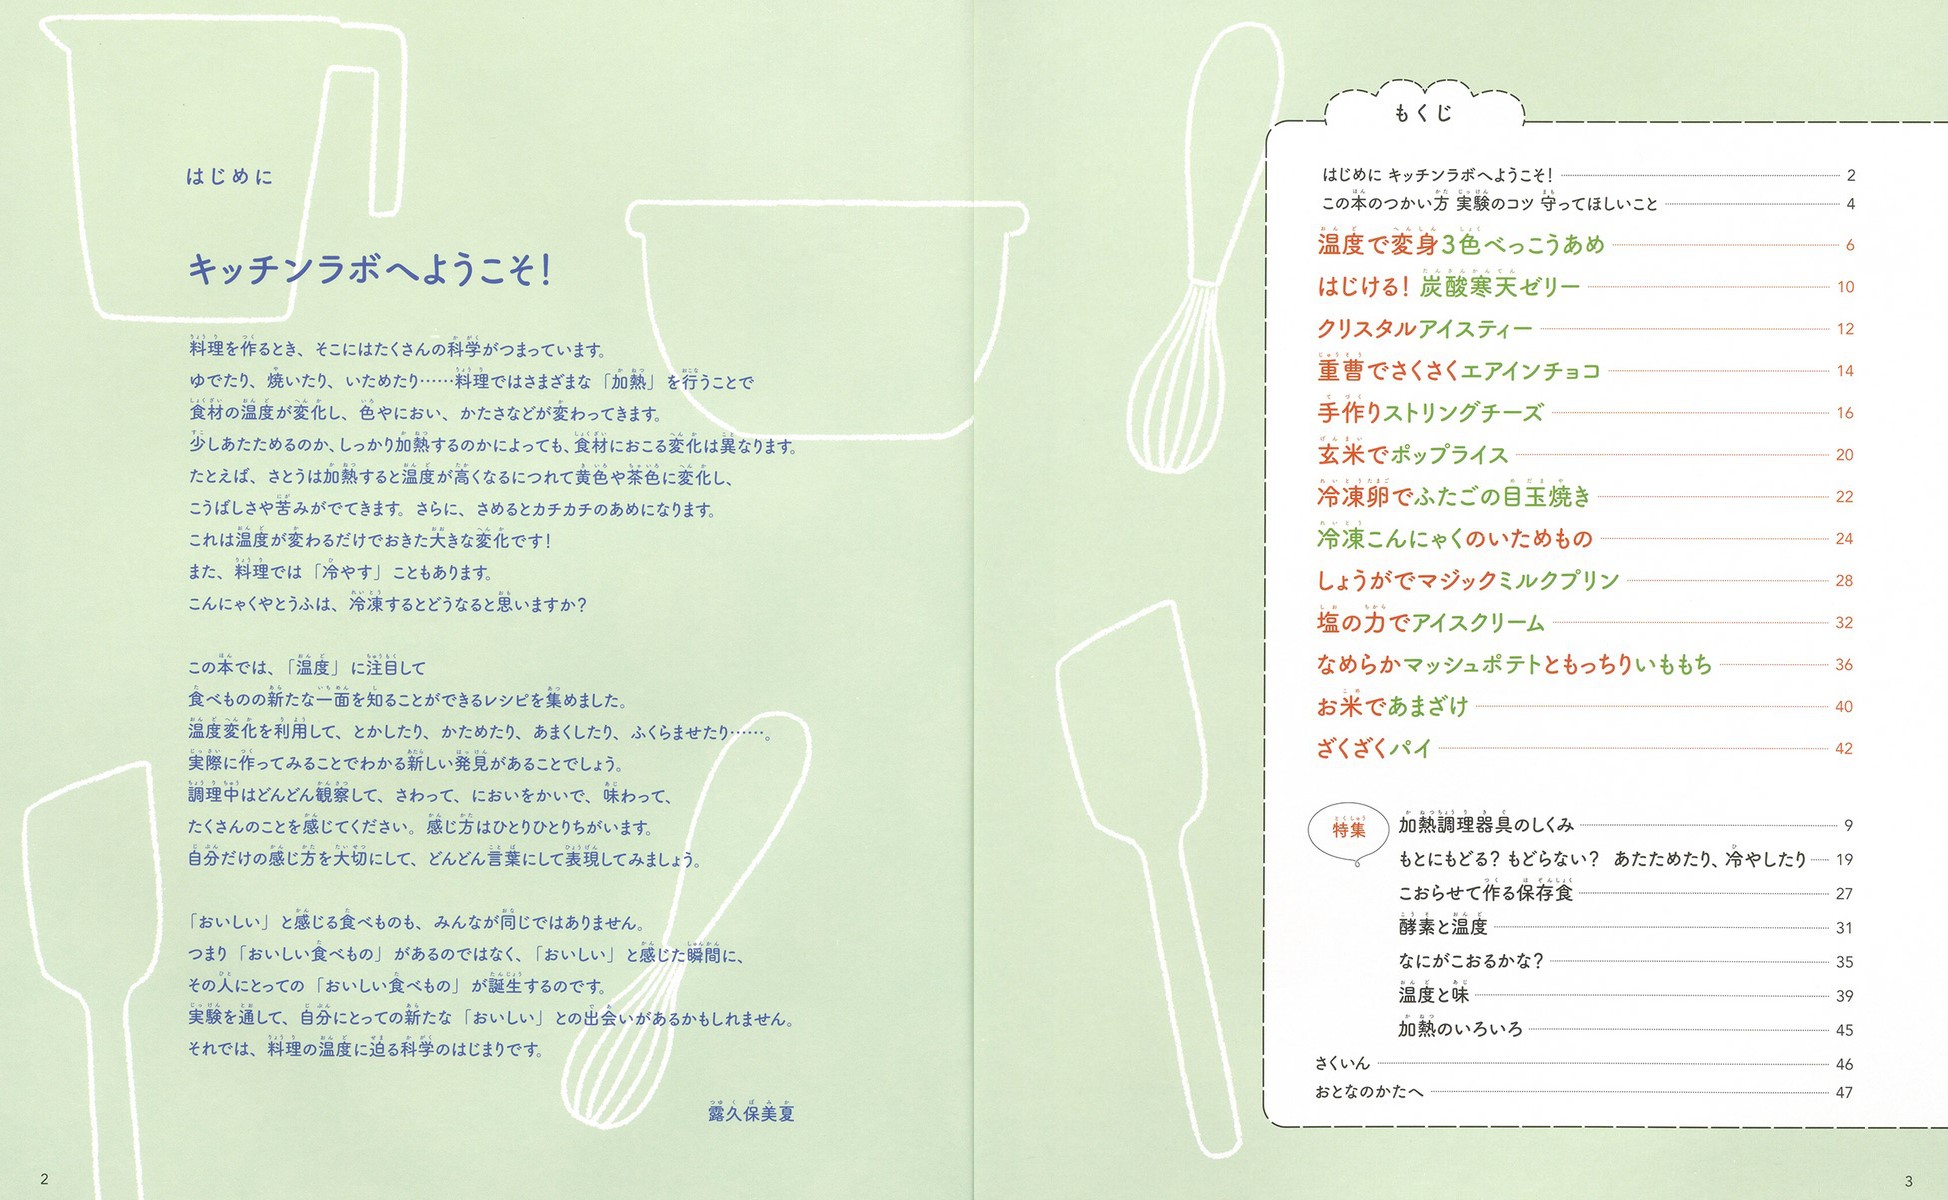 はじめに
キッチンラボへようこそ！
料理を作るとき、そこにはたくさんの科学がつまっています。
ゆでたり、焼いたり、いためたり……料理ではさまざまな「加熱」を行うことで
食材の温度が変化し、色やにおい、かたさなどが変わってきます。
少しあたためるのか、しっかり加熱するのかによっても、食材におこる変化は異なります。
たとえば、さとうは加熱すると温度が高くなるにつれて黄色や茶色に変化し、
こうばしさや苦みがでてきます。さらに、さめるとカチカチのあめになります。
これは温度が変わるだけでおきた大きな変化です！
また、料理では「冷やす」こともあります。
こんにゃくやとうふは、冷凍するとどうなると思いますか？
この本では、「温度」に注目して
食べものの新たな一面を知ることができるレシピを集めました。
温度変化を利用して、とかしたり、かためたり、あまくしたり、ふくらませたり……。
実際に作ってみることでわかる新しい発見があることでしょう。
調理中はどんどん観察して、さわって、においをかいで、味わって、
たくさんのことを感じてください。感じ方はひとりひとりちがいます。
自分だけの感じ方を大切にして、どんどん言葉にして表現してみましょう。
「おいしい」と感じる食べものも、みんなが同じではありません。
つまり「おいしい食べもの」があるのではなく、「おいしい」と感じた瞬間に、
その人にとっての「おいしい食べもの」が誕生するのです。
実験を通して、自分にとっての新たな「おいしい」との出会いがあるかもしれません。
それでは、料理の温度に迫る科学のはじまりです。
露久保美夏
2
もくじ
はじめに キッチンラボへようこそ！ 2
この本のつかい方 実験のコツ 守ってほしいこと 4
温度で変身3色べっこうあめ 6
はじける！ 炭酸寒天ゼリー 10
クリスタルアイスティー 12
重曹でさくさくエアインチョコ 14
手作りストリングチーズ 16
玄米でポップライス 20
冷凍卵でふたごの目玉焼き 22
冷凍こんにゃくのいためもの 24
しょうがでマジックミルクプリン 28
塩の力でアイスクリーム 32
なめらかマッシュポテトともっちりいももち 36
お米であまざけ 40
ざくざくパイ 42
特集
加熱調理器具のしくみ 9
もとにもどる？ もどらない？ あたためたり、冷やしたり 19
こおらせて作る保存食 27
酵素と温度 31
なにがこおるかな？ 35
温度と味 39
加熱のいろいろ 45
さくいん 46
おとなのかたへ 47
3